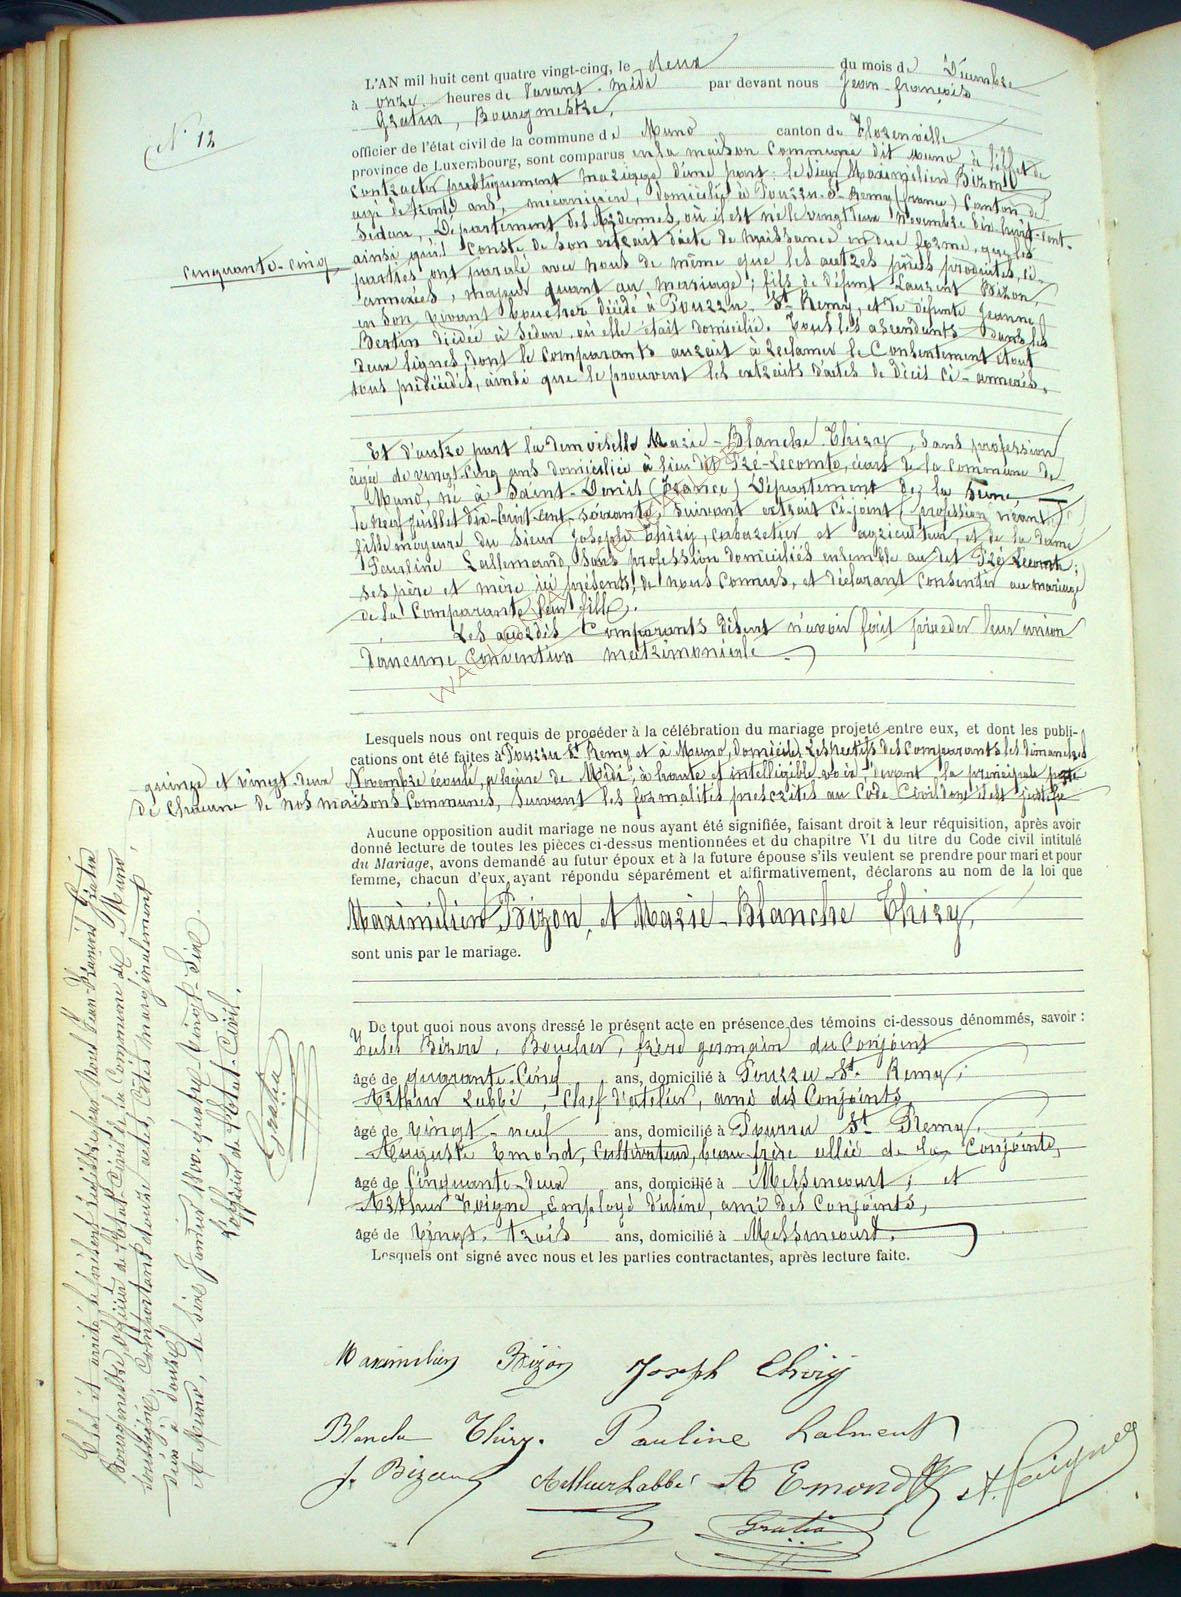 N° 12
L'AN mil huit cent quatre vingt-cinq, le deux du mois de Décembre
à onze heures de l'avant-midi par devant nous Jean-françois
Gratia, Bourgmestre,
officier de l'état civil de la commune de Muno canton de Florenville
province de Luxembourg, sont comparus en la maison Commune dit Muno à l'effet de
contracter publiquement mariage d'une part: le sieur Maximilien Bizon
agé de trente ans, mécanicien, domicilié à Pouzzu-St-Remy (france) Canton de
Sedan, Département des Ardennes, où il est né le vingt deux Novembre dix-huit-cent-
cinquante-cinq
ainsi qu'il conste de son extrait d'acte de naissance en due forme, que les
parties ont paraphé avec nous de même que les autres pièces produites, ci-
annexées, majeur quant au mariage; fils de défunt Laurent Bizon,
en son vivant boucher décédé à Pouzzu St-Remy, et de défunte Jeanne
Bertin décédée à Sedan où elle était domiciliée. Tous les ascendants dans les
deux lignes, dont le comparants aurait à réclamer le Consentement étant
tous prédécédés, ainsi que le prouvent les extraits d'actes de décès ci-annexés.
Et d'autre part la demoiselle Marie-Blanche Thiry, sans profession
âgée de vingt-cinq ans domiciliée à lieu dit Pré-Lecomte, écart de la commune de
Muno, né à Saint-Denis (France) Département de la Seine,
le neuf juillet dix-huit-cent-soixante, suivant extrait ci-joint (profession néant)
fille majeure du sieur Joseph Thiry, cabaretier et agriculteur, et de la dame
Pauline Lallemand, sans profession domiciliés ensemble au dit Pré Lecomte;
ses père et mère ici présents, de nous connus, et déclarant consentir au mariage
de la Comparante leur fille.
Les susdits Comparants disent n'avoir fait précéder leur union
d'aucune convention matrimoniale.
Lesquels nous ont requis de procéder à la célébration du mariage projeté entre eux, et dont les publi-
cations ont été faites à Pouzzu St Remy et à Muno, domiciles respectifs des Comparants les dimanches
quinze et vingt-deux Novembre écoulé, à heure de Midi, à haute et intelligible voix, devant la principale porte
de Chacune de nos maisons Communes, suivant les formalités prescrites au Code Civil dont il est justifié
Aucune opposition audit mariage ne nous ayant été signifiée, faisant droit à leur réquisition, après avoir
donné lecture de toutes les pièces ci-dessus mentionnées et du chapitre VI du titre du Code civil intitulé
du Mariage, avons demandé au futur époux et à la future épouse s'ils veulent se prendre pour mari et pour
femme, chacun d'eux ayant répondu séparément et affirmativement, déclarons au nom de la loi que
Maximilien Bizon, et Marie-Blanche Thiry,
sont unis par le mariage.
De tout quoi nous avons dressé le présent acte en présence des témoins ci-dessous dénommés, savoir :
Jules Bizon, Boucher, frère germain du Conjoint
âgé de quarante-cinq ans, domicilié à Pouzzu St. Remy;
Arthur Labbé, Chef d'atelier, ami des Conjoints,
âgé de vingt-neuf ans, domicilié à Pourru St Remy,
Auguste Emond, Cultivateur, beau-frère allié de la Conjointe,
âgé de Cinquante-deux ans, domicilié à Messincourt; et
Arthur Poigne, employé d'usine, ami des Conjoints,
âgé de vingt-trois ans, domicilié à Messincourt.
Lesquels ont signé avec nous et les parties contractantes, après lecture faite.
Maximilien Bizon Joseph Thiry
Blanche Thiry. Pauline Lalment
J. Bizon Arthur Labbé A Emond A. Poigne
Gratia
Clos et arrêté le présent registre par Nous Jean-François Gratia
Bourgmestre, officier de l'état-Civil de la Commune de Muno,
soussigné, Comportant douze actes, Cotés marginalement
d'un à douze.
A Muno, le six Janvier 1800-quatre-vingt-six.
L'officier de l'état-Civil.
Gratia